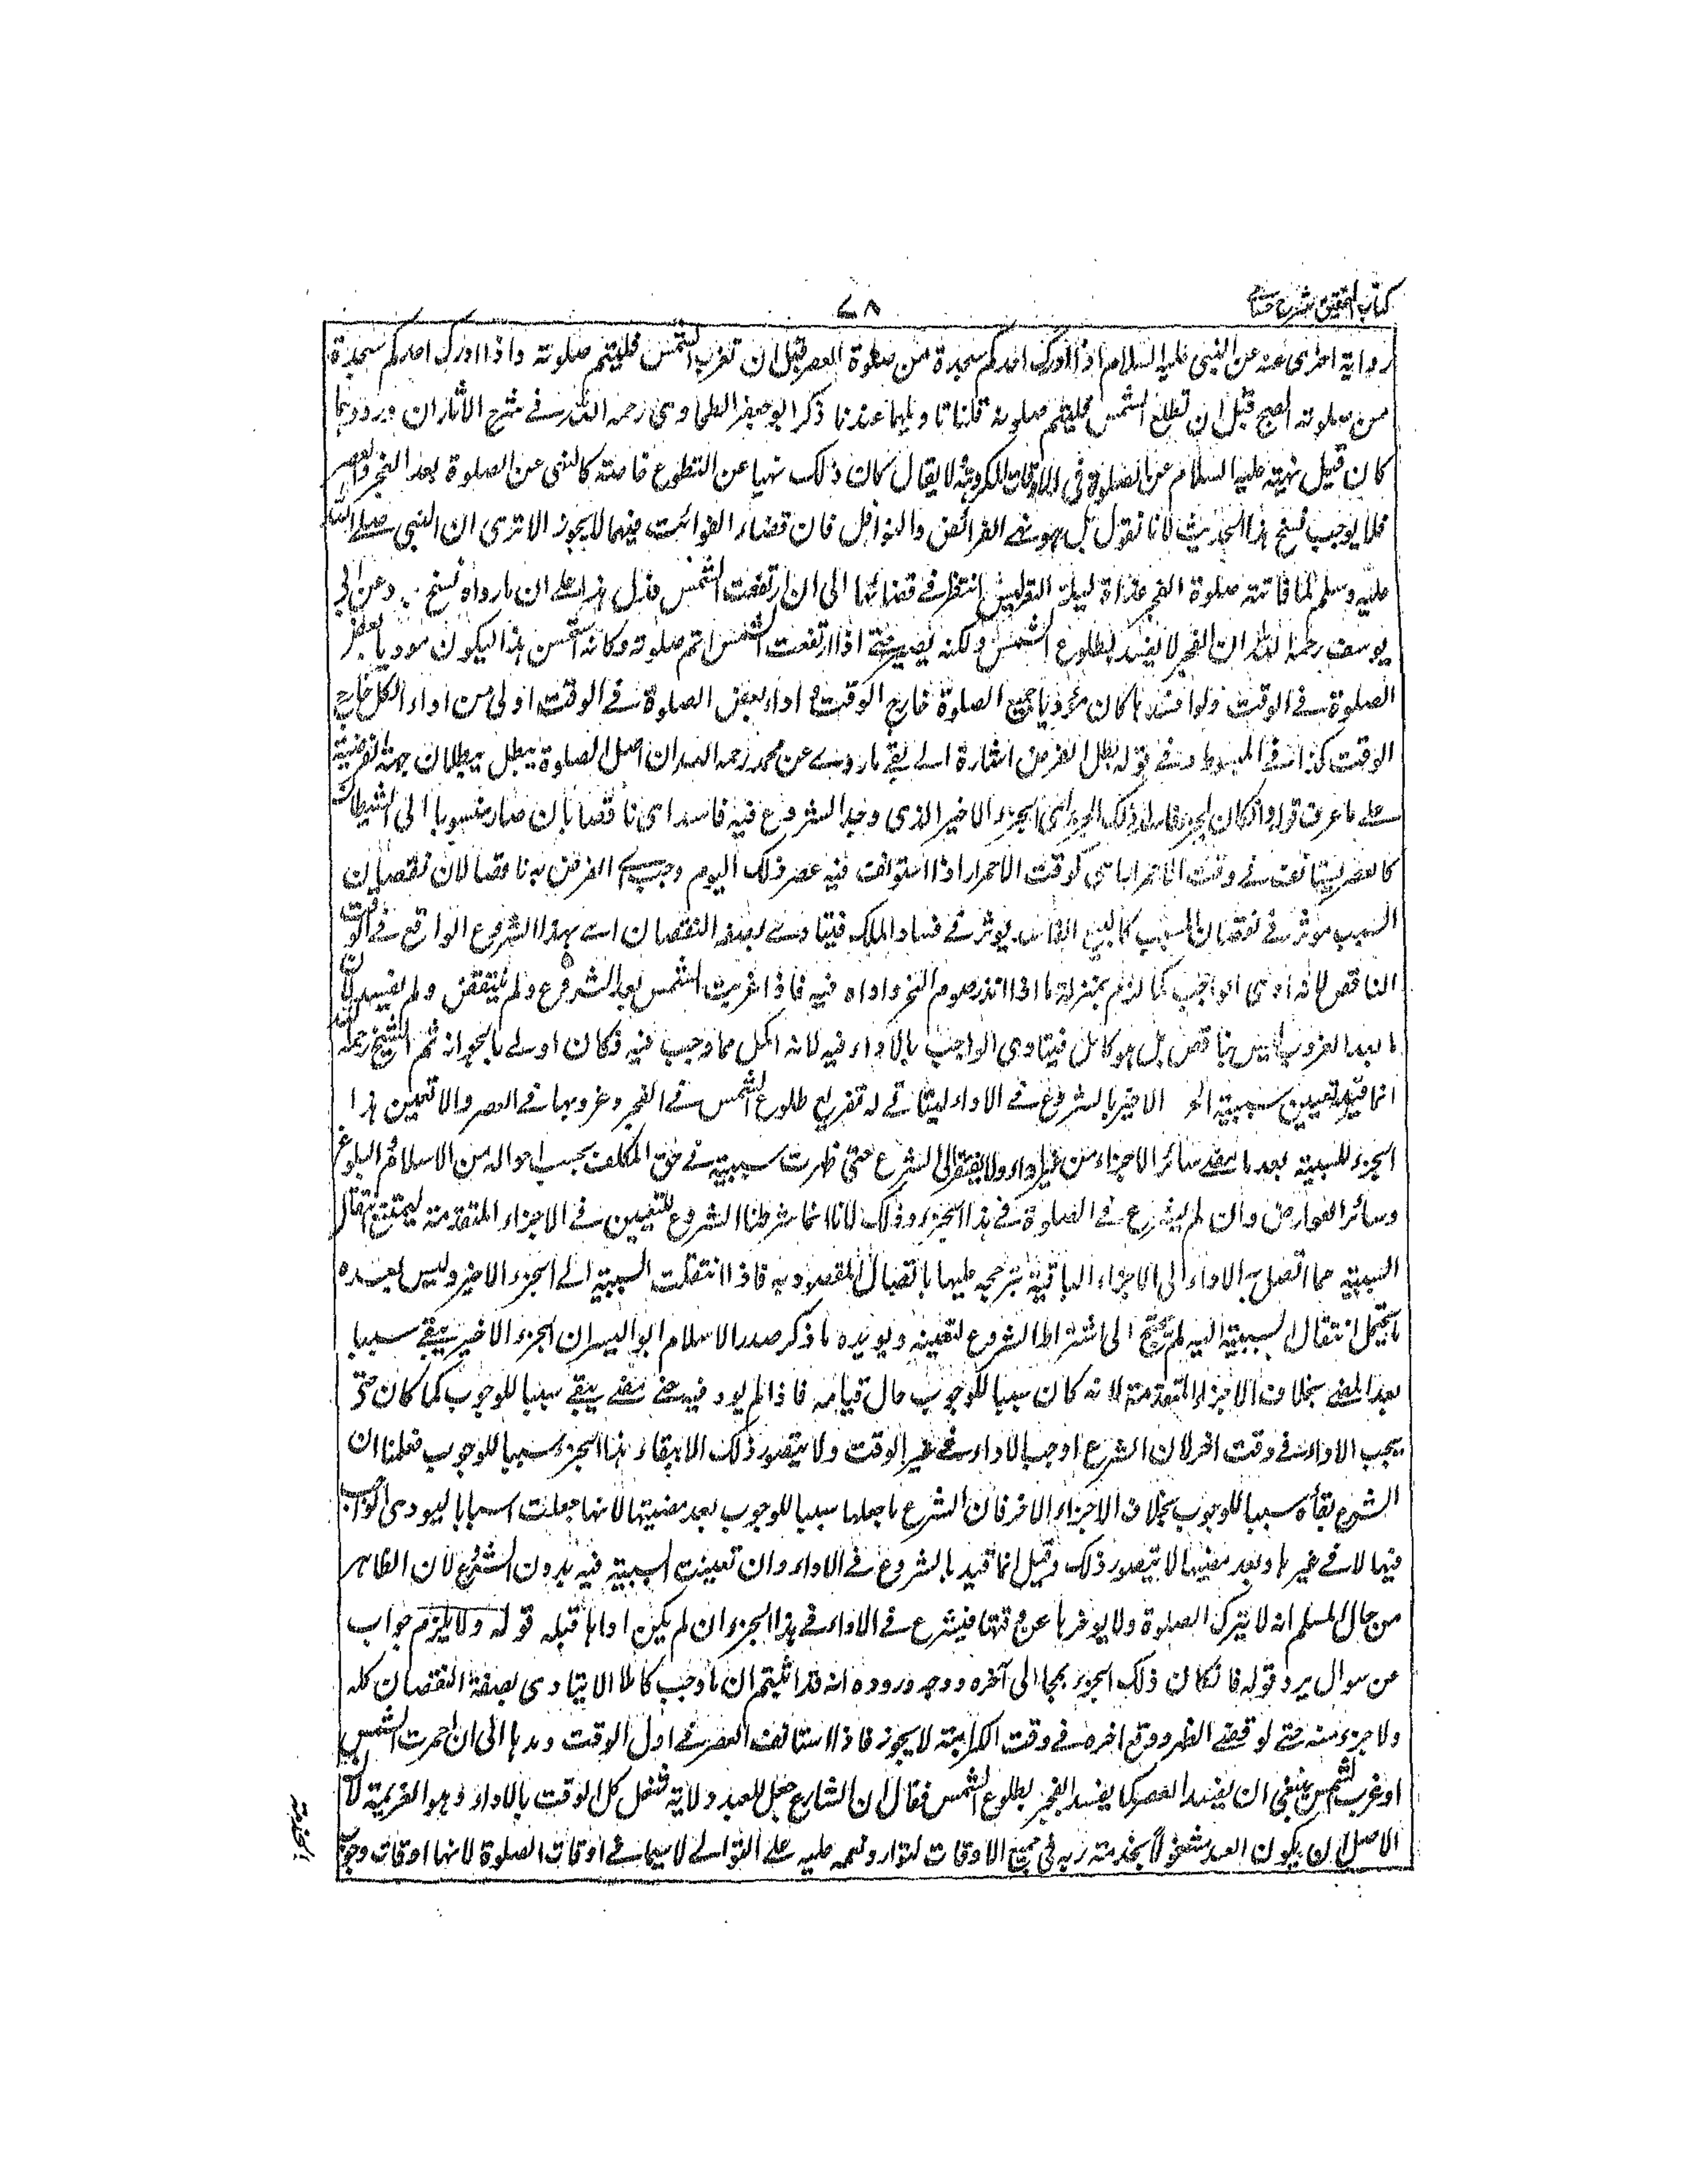 كتاب التحقيق شرح حسامى
٧٨
رواية اخرى عنه عن النبى عليه السلام اذا ادرك احدكم سجدة من صلوة العصر قبل ان تغرب الشمس فليتم صلوته واذا ادرك احدكم سجدة
من صلوة الصبح قبل ان تطلع الشمس فليتم صلوته قلنا تاويلهما عندنا ذكر ابو جعفر الطحاوى رحمه الله فى شرح الاثار ان ورودهما
كان قبل نهيه عليه السلام عن الصلوة فى الاوقات المكروهة لا يقال كان ذلك نهيا عن التطوع خاصة كالنهى عن الصلوة بعد الفجر والعصر
فلا يوجب نسخ هذا الحديث لانا نقول بل هو نهى الفرائض والنوافل فان قضاء الفوائت فيهما لا يجوز الا ترى ان النبى صلى الله
عليه وسلم لما فاتته صلوة الفجر غداة ليلة التعريس انتظر فى قضائها الى ان ارتفعت الشمس فدل هذا على ان ما رواه نسخ وعن ابى
يوسف رحمه الله ان الفجر لا يفسد بطلوع الشمس ولكنه يصبر حتى اذا ارتفعت الشمس اتم صلوته وكانه استحسن هذا ليكون موديا بعض
الصلوة فى الوقت ولو افسدناها كان موديا جميع الصلوة خارج الوقت و اداء بعض الصلوة فى الوقت اولى من اداء الكل خارج
الوقت كذا فى المبسوط وفى قوله بطل الفرض اشارة الى بقى ما روى عن محمد رحمه الله ان اصل الصلوة يبطل ببطلان جهة الفرضية
على ما عرف قوله وان كان ذلك الجزء اى الجزء الاخير الذى وجد الشروع فيه فاسدا اى ناقصا بان صار منسوبا الى الشيطان
كالعصر يستانف فى وقت الاحمرار اى كوقت الاحمرار اذا استونف فيه عصر ذلك اليوم وجب الفرض به ناقصا لان نقصان
السبب موثر فى نقصان المسبب كالبيع الفاسد يوثر فى فساد الملك فيتادى بصفة النقصان اى بهذا الشروع الواقع فى الوقت
الناقص لانه ادى الواجب كما لزم بمنزلة ما اذا انذر صوم النحر واداه فيه فاذا غربت الشمس بعد الشروع ولم ينتقض ولم يفسد لان
ما بعد الغروب ليس بناقص بل هو كامل فيتادى الواجب بالاداء فيه لانه اكمل مما وجب فيه فكان اولى بالجواز ثم الشيخ رحمه الله
انما قيد تعيين سببية الجزء الاخير بالشروع فى الاداء ليتاتى له تفريع طلوع الشمس فى الفجر وغروبها فى العصر والا فتعين هذا
الجزء للسببية بعد ما مضى سائر الاجزاء من غير اداء ولا يفتقر الى الشرع حتى ظهرت سببيته فى حق المكلف بحسب احواله من الاسلام والبلوغ
وسائر العوارض وان لم يشرع فى الصلوة فى هذا الجزء وذلك لانا انما شرطنا الشروع للتعيين فى الاجزاء المتقدمة ليمتنع انتقال
السببية عما اتصل به الاداء الى الاجزاء الباقية بترجحه عليها باتصال المقصود به فاذا انتقلت السببية الى الجزء الاخير وليس بعده
ما يحتمل انتقال السببية اليه لم يحتج الى اشتراط الشروع لتعينه ويويده ما ذكر صدر الاسلام ابو اليسر ان الجزء الاخير يبقى سببا
بعد المضى بخلاف الاجزاء المتقدمة لانه كان سببا للوجوب حال قيامه فاذا لم يود فيه حتى مضى يبقى سببا للوجوب كما كان حتى
يجب الاداء فى وقت اخر لان الشرع اوجب الاداء فى غير الوقت ولا يتصور ذلك الا ببقاء هذا الجزء سببا للوجوب فعلمنا ان
الشرع بقاه سببا للوجوب بخلاف الاجزاء الاخر فان الشرع ما جعلها سببا للوجوب بعد مضيها لانها جعلت اسبابا ليودى الواجب
فيها لا فى غيرها وبعد مضيها لا يتصور ذلك وقيل انما قيد بالشروع فى الاداء وان تعينت السببية فيه بدون الشروع لان الظاهر
من حال المسلم انه لا يترك الصلوة ولا يوخرها عن وقتها فيشرع فى الاداء فى هذا الجزء ان لم يكن اداها قبله قوله ولا يلزم جواب
عن سوال يرد قوله فان كان ذلك الجزء صحيحا الى آخره ووجه وروده انه قد اثبتم ان ما وجب كاملا لا يتادى بصفة النقصان كله
ولا جزء منه حتى لو قضى الظهر ووقع اخره فى وقت الكراهية لا يجوز فاذا استانف العصر فى اول الوقت ومدها الى ان احمرت الشمس
او غرب الشمس ينبغى ان يفسد العصر كما يفسد الفجر بطلوع الشمس فقال ان الشارع جعل للعبد ولاية شغل كل الوقت بالاداء وهو العزيمة لان
الاصل ان يكون العبد مشغولا بخدمة ربه فى جميع الاوقات لتواتر نعمه عليه على التوالى لا سيما فى اوقات الصلوة لانها اوقات وجوب
الخدمة